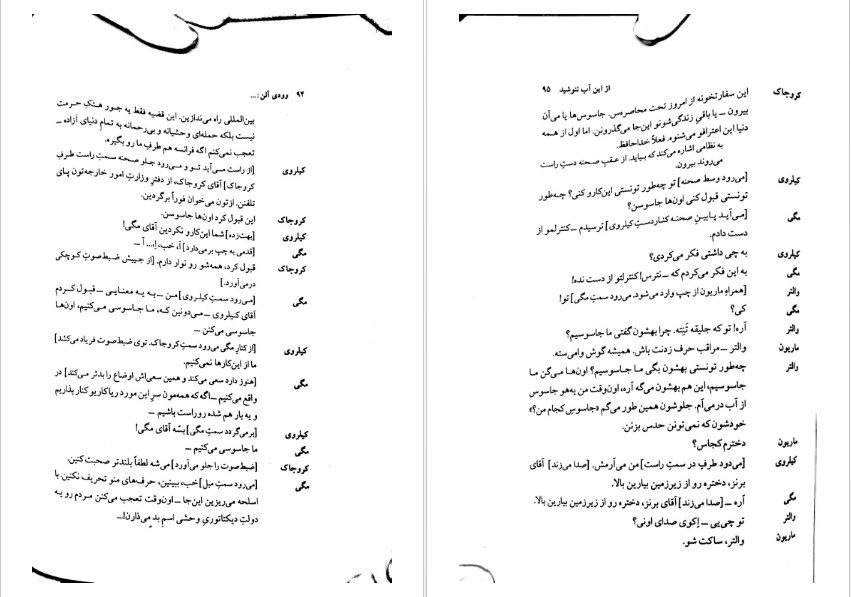 ۹۴ وودی آلن:...
بین‌المللی راه می‌ندازین. این قضیه فقط یه جور هتکِ حرمت
نیست بلکه حمله‌ای وحشیانه و بی‌رحمانه به تمام دنیای آزاده ــ
تعجب نمی‌کنم اگه فرانسه هم طرفِ ما رو بگیره.
کیلروی [از راست می‌آید تو و می‌رود جلو صحنه سمتِ راست طرفِ
کروجاک] آقای کروجاک، از دفترِ وزارتِ امور خارجه‌تون پای
تلفنن. ازتون می‌خوان فوراً برگردین.
کروجاک این قبول کرد اون‌ها جاسوسن.
کیلروی [بهت‌زده] شما این‌کارو نکردین آقای مگی!
مگی [قدمی به چپ برمی‌دارد] آ، خب، اِ... آ ــ
کروجاک قبول کرد، همه‌شو رو نوار دارم. [از جیبش ضبط‌صوتِ کوچکی
درمی‌آورد.]
مگی [می‌رود سمتِ کیلروی] من ــ به یه معنایی ــ قبول کردم
آقای کیلروی ــ می‌دونین که، ما جاسوسی می‌کنیم، اون‌ها
جاسوسی می‌کنن ــ
کیلروی [از کنارِ مگی می‌رود سمتِ کروجاک. توی ضبط‌صوت فریاد می‌کشد]
ما از این‌کارها نمی‌کنیم.
مگی [هنوز دارد سعی می‌کند و همین سعی‌اش اوضاع را بدتر می‌کند] در
واقع می‌کنیم ــ اگه که همه‌مون سرِ این مورد ریاکاریو کنار بذاریم
و یه بار هم شده روراست باشیم ــ
کیلروی [برمی‌گردد سمتِ مگی] بسّه آقای مگی!
مگی ما جاسوسی می‌کنیم ــ
کروجاک [ضبط‌صوت را جلو می‌آورد] می‌شه لطفاً بلندتر صحبت کنین.
مگی [می‌رود سمتِ مبل] خب، ببینین، حرف‌های منو تحریف نکنین. با
اسلحه می‌ریزین این‌جا ــ اون‌وقت تعجب می‌کنن مردم رو یه
دولتِ دیکتاتوریِ وحشی اسمِ بد می‌ذارن!...
از این آب ننوشید ۹۵
کروجاک این سفارتخونه از امروز تحت محاصره‌س. جاسوس‌ها یا می‌آن
بیرون ــ یا باقیِ زندگی‌شونو این‌جا می‌گذرونن. اما اول از همه
دنیا این اعترافو می‌شنوه. فعلاً خداحافظ.
به نظامی اشاره می‌کند که بیاید. از عقبِ صحنه دستِ راست
می‌روند بیرون.
کیلروی [می‌رود وسط صحنه] تو چه‌طور تونستی این‌کارو کنی؟ چه‌طور
تونستی قبول کنی اون‌ها جاسوسن؟
مگی [می‌آید پایینِ صحنه کنار دستِ کیلروی] ترسیدم ــ کنترلمو از
دست دادم.
کیلروی به چی داشتی فکر می‌کردی؟
مگی به این فکر می‌کردم که ــ نترس! کنترلتو از دست نده!
والتر [همراهِ ماریون از چپ وارد می‌شود. می‌رود سمتِ مگی] تو!
مگی کی؟
والتر آره! تو که جلیقه تَنِته. چرا بهشون گفتی ما جاسوسیم؟
ماریون والتر ــ مراقب حرف زدنت باش. همیشه گوش وامی‌سته.
والتر چه‌طور تونستی بهشون بگی ما جاسوسیم؟ اون‌ها می‌گن ما
جاسوسیم، این هم بهشون می‌گه آره، اون‌وقت من یه‌هو جاسوس
از آب درمی‌آم. جلوشون همین طور می‌گم «جاسوسِ کجام من؟»
خودشون که نمی‌تونن حدس بزنن.
ماریون دخترم کجاس؟
کیلروی [می‌دود طرف در سمتِ راست] من می‌آرمش. [صدا می‌زند] آقای
برنز، دختره رو از زیرزمین بیارین بالا.
مگی آره ــ [صدا می‌زند] آقای برنز، دختره رو از زیرزمین بیارین بالا.
والتر تو چی‌یی ــ اِکوی صدای اونی؟
ماریون والتر، ساکت شو.